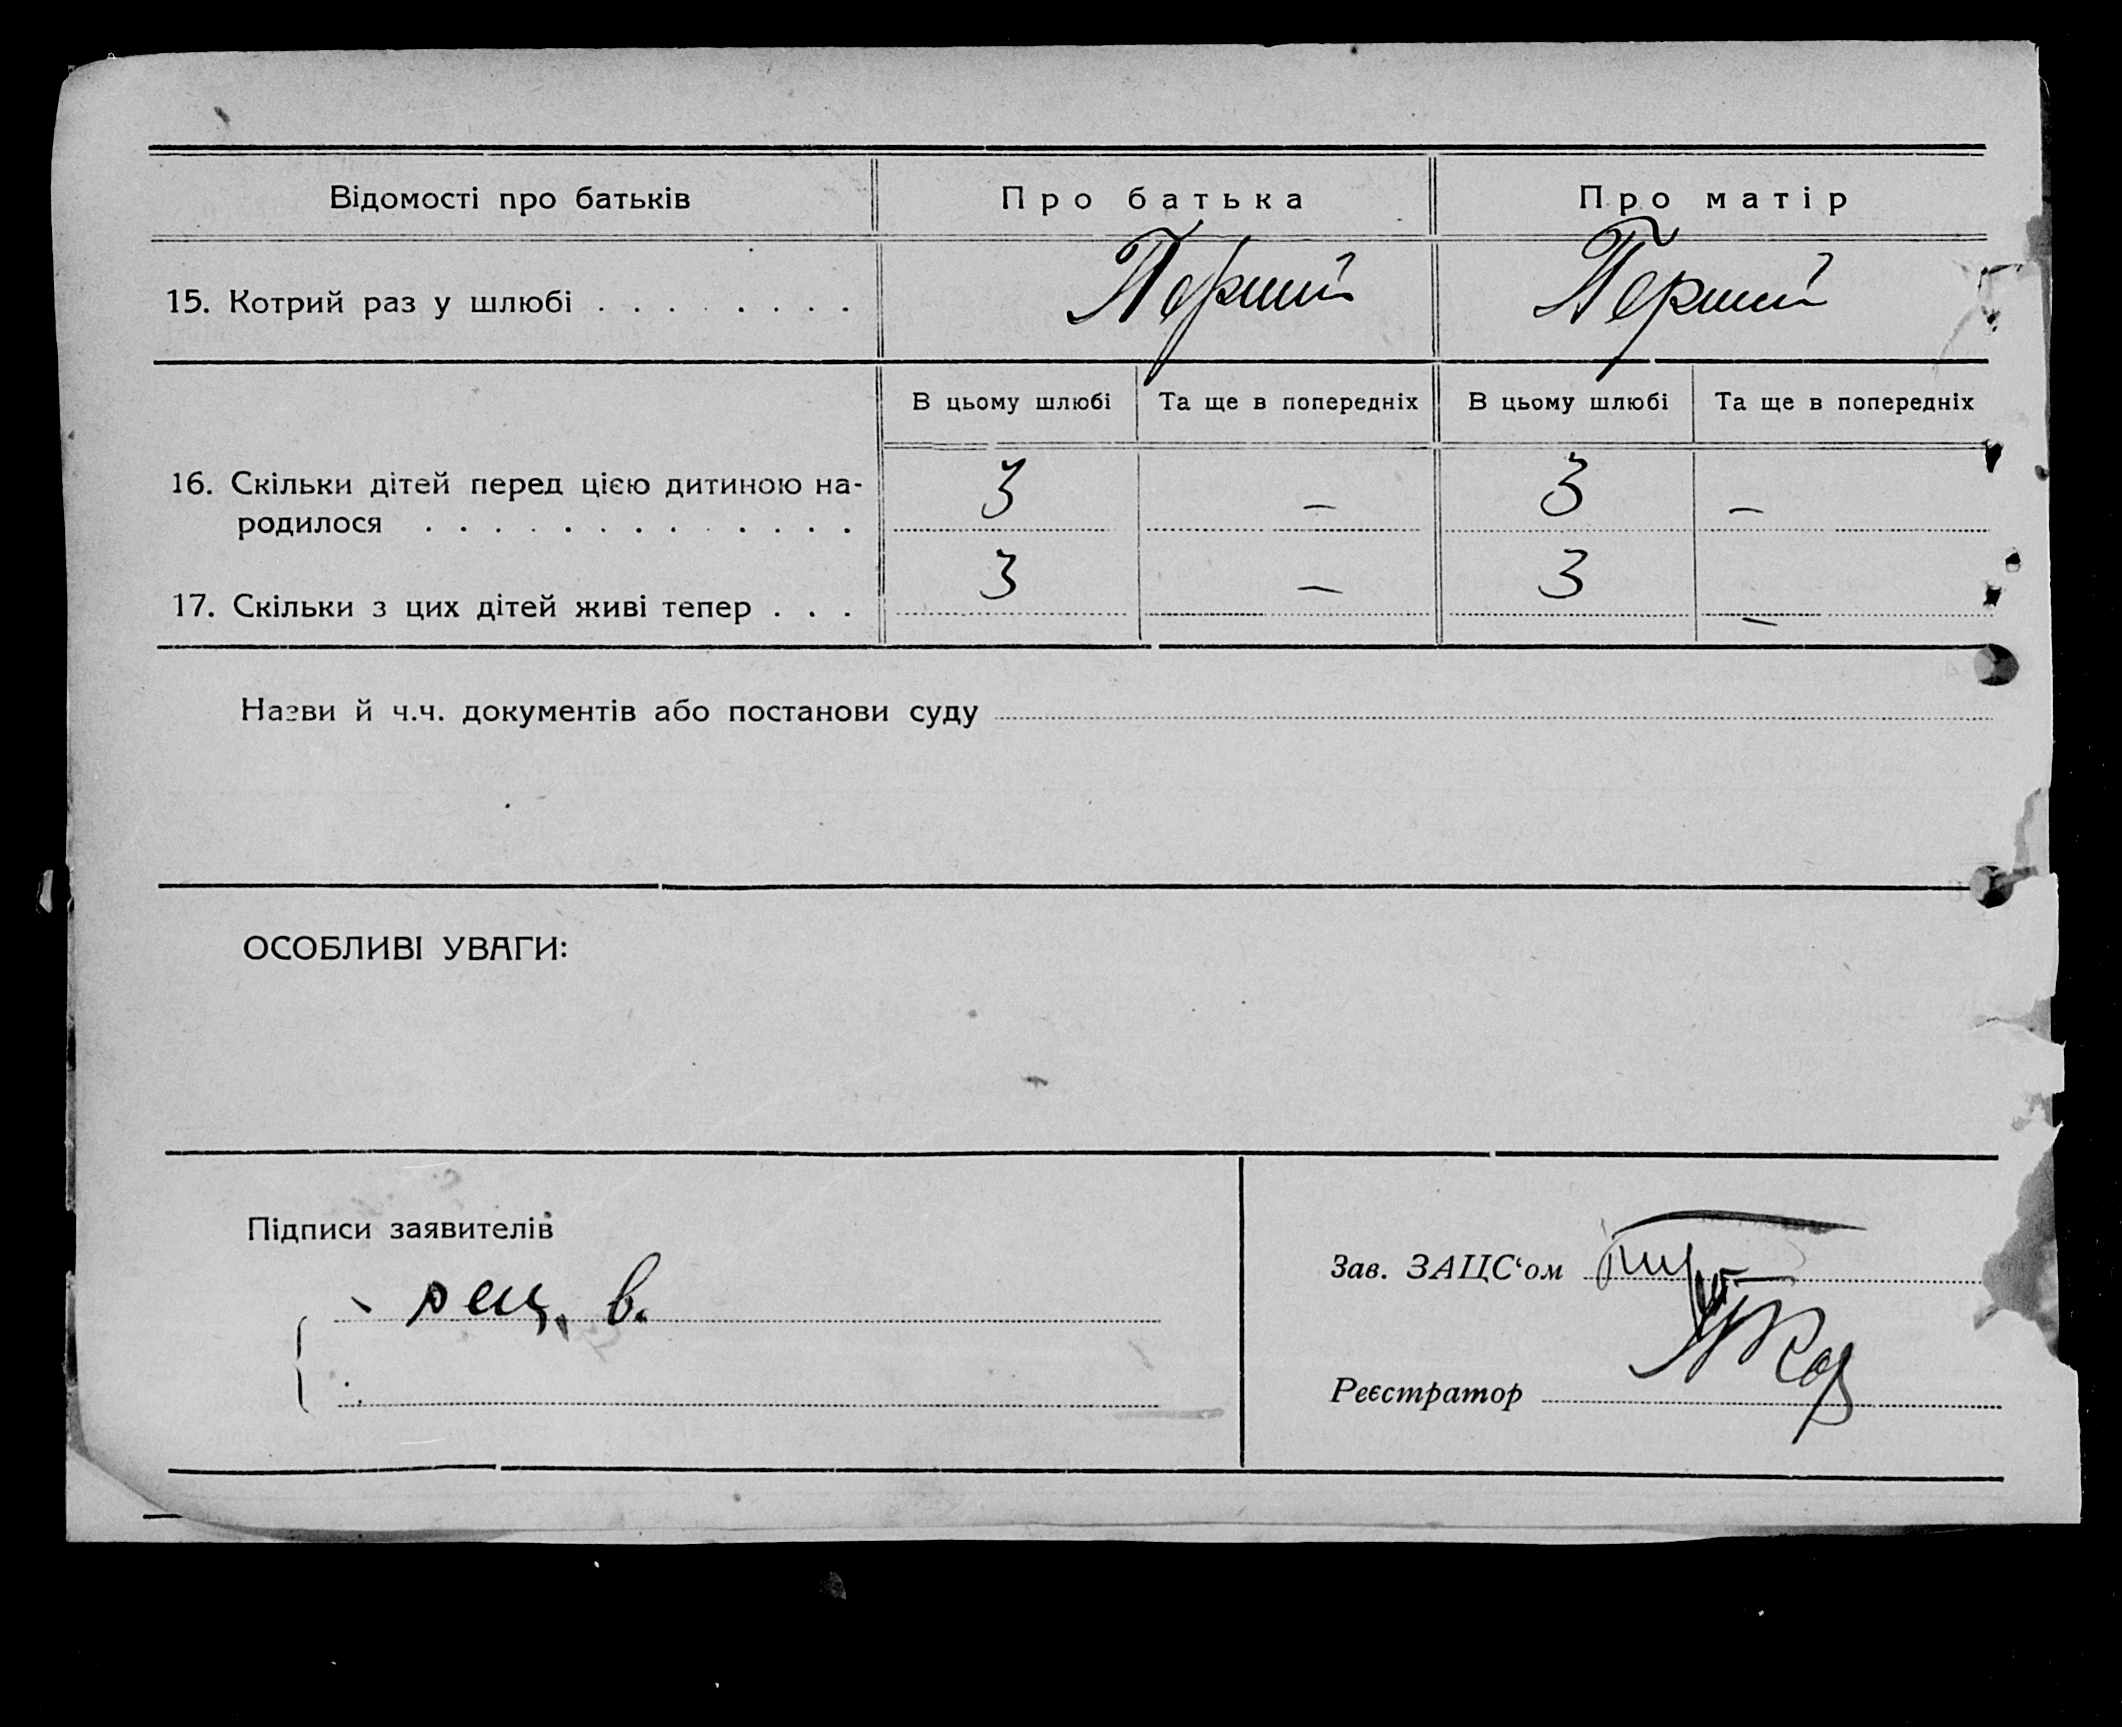 Відомості про батьків Про батька Про матір
15. Котрий раз у шлюбі . . . . . . . . Перший Перший
В цьому шлюбі Та ще в попередніх В цьому шлюбі Та ще в попередніх
16. Скільки дітей перед цією дитиною на-
родилося . . . . . . . . . . . . 3 — 3 —
17. Скільки з цих дітей живі тепер . . . 3 — 3 —
Назви й ч.ч. документів або постанови суду
ОСОБЛИВІ УВАГИ:
Підписи заявителів
Зав. ЗАЦС‘ом
Реєстратор